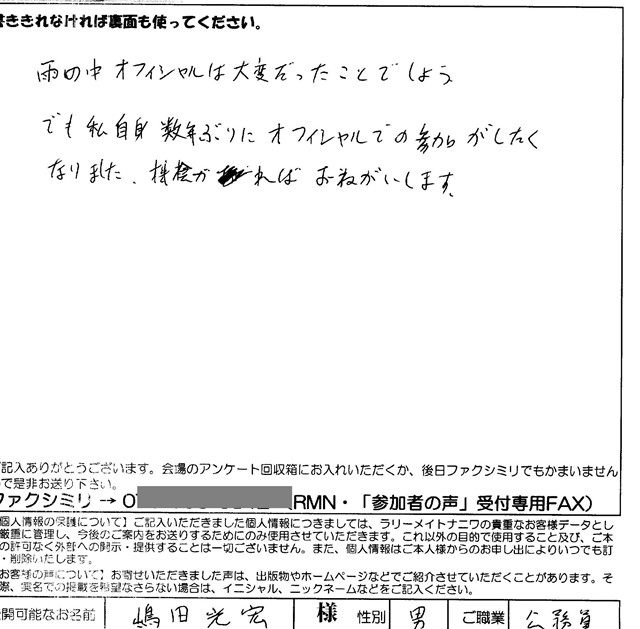 書ききれなければ裏面も使ってください。
雨の中オフィシャルは大変だったことでしょう
でも私自身数年ぶりにオフィシャルでの参加がしたく
なりました、機会がればおねがいします。
ご記入ありがとうございます。会場のアンケート回収箱にお入れいただくか、後日ファクシミリでもかまいません
で是非お送り下さい。
ファクシミリ → 0 (RMN・「参加者の声」受付専用FAX)
個人情報の保護について】ご記入いただきました個人情報につきましては、ラリーメイトナニワの貴重なお客様データとし
厳重に管理し、今後のご案内をお送りするためにのみ使用させていただきます。これ以外の目的で使用すること及び、ご本
の許可なく外部への開示・提供することは一切ございません。また、個人情報はご本人様からのお申し出によりいつでも訂
・削除いたします。
お客様の声について】お寄せいただきました声は、出版物やホームページなどでご紹介させていただくことがあります。そ
際、実名での掲載を希望なさらない場合は、イニシャル、ニックネームなどをご記入ください。
開可能なお名前 嶋田光宏 様 性別 男 ご職業 公務員